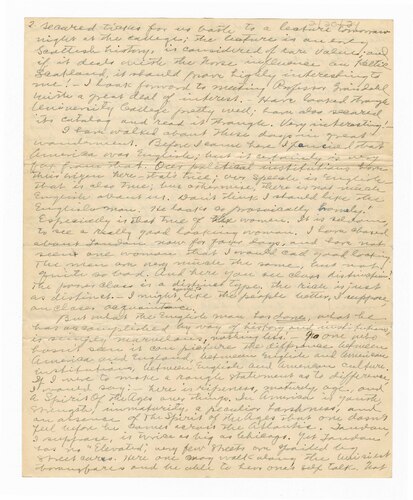 2. secured tickets for us both to a lecture tomorrow
night at the college; the lecture is on early
Scottish history, is considered of rare value; and
if it deals with the Norse influence on Keltic
Scotland, it should prove highly interesting to
me! - I look forward to meeting Professor
with a great deal of interest. Have looked through
University College pretty well; have also secured
its catalog and read it through. Very interesting!
I have walked about these days in great
wonderment. Before I came here I fancied that
America was English; but it certainly is very
far from that. Our political institutions have
their origin here - that's true; our speech is English -
that is also true; but otherwise, there is not much
English about us. Don't think I should like the
Englishman. He looks provincially "homely".
Especially is that true of the women. It is seldom
to see a really good looking woman. I have strolled
about London now for four days, and have not
seen one woman that I would call good looking.
The men are very much the same, but not
quite so bad. And here you see class distinction!
The poorer class is a distinct type, the rich is just
as distinct. - I might like the people better, I suppose,
on closer acquaintance.
But what the English man has done, what he
has accomplished by way of history and institutions,
is simply marvelous, nothing less. To one who
has crossed the difference between
America and England, between English and American
institutions, between English and American culture.
If I were to make a rough statement as to difference,
I would say: - here is ripeness, maturity, age, and
a Spirit Of the Ages over things. In America is youth,
strength, immaturity, a peculiar harshness, and
an absence of the Spirit Of the Ages that one doesn't
feel before he comes across the Atlantic. London,
I suppose, is twice as big as Chicago. Yet London
has no "Elevated"; very few streets are spoiled by
street cars. Here one may walk along the busiest
thoroughfares and be able to hear one's self talk. Not